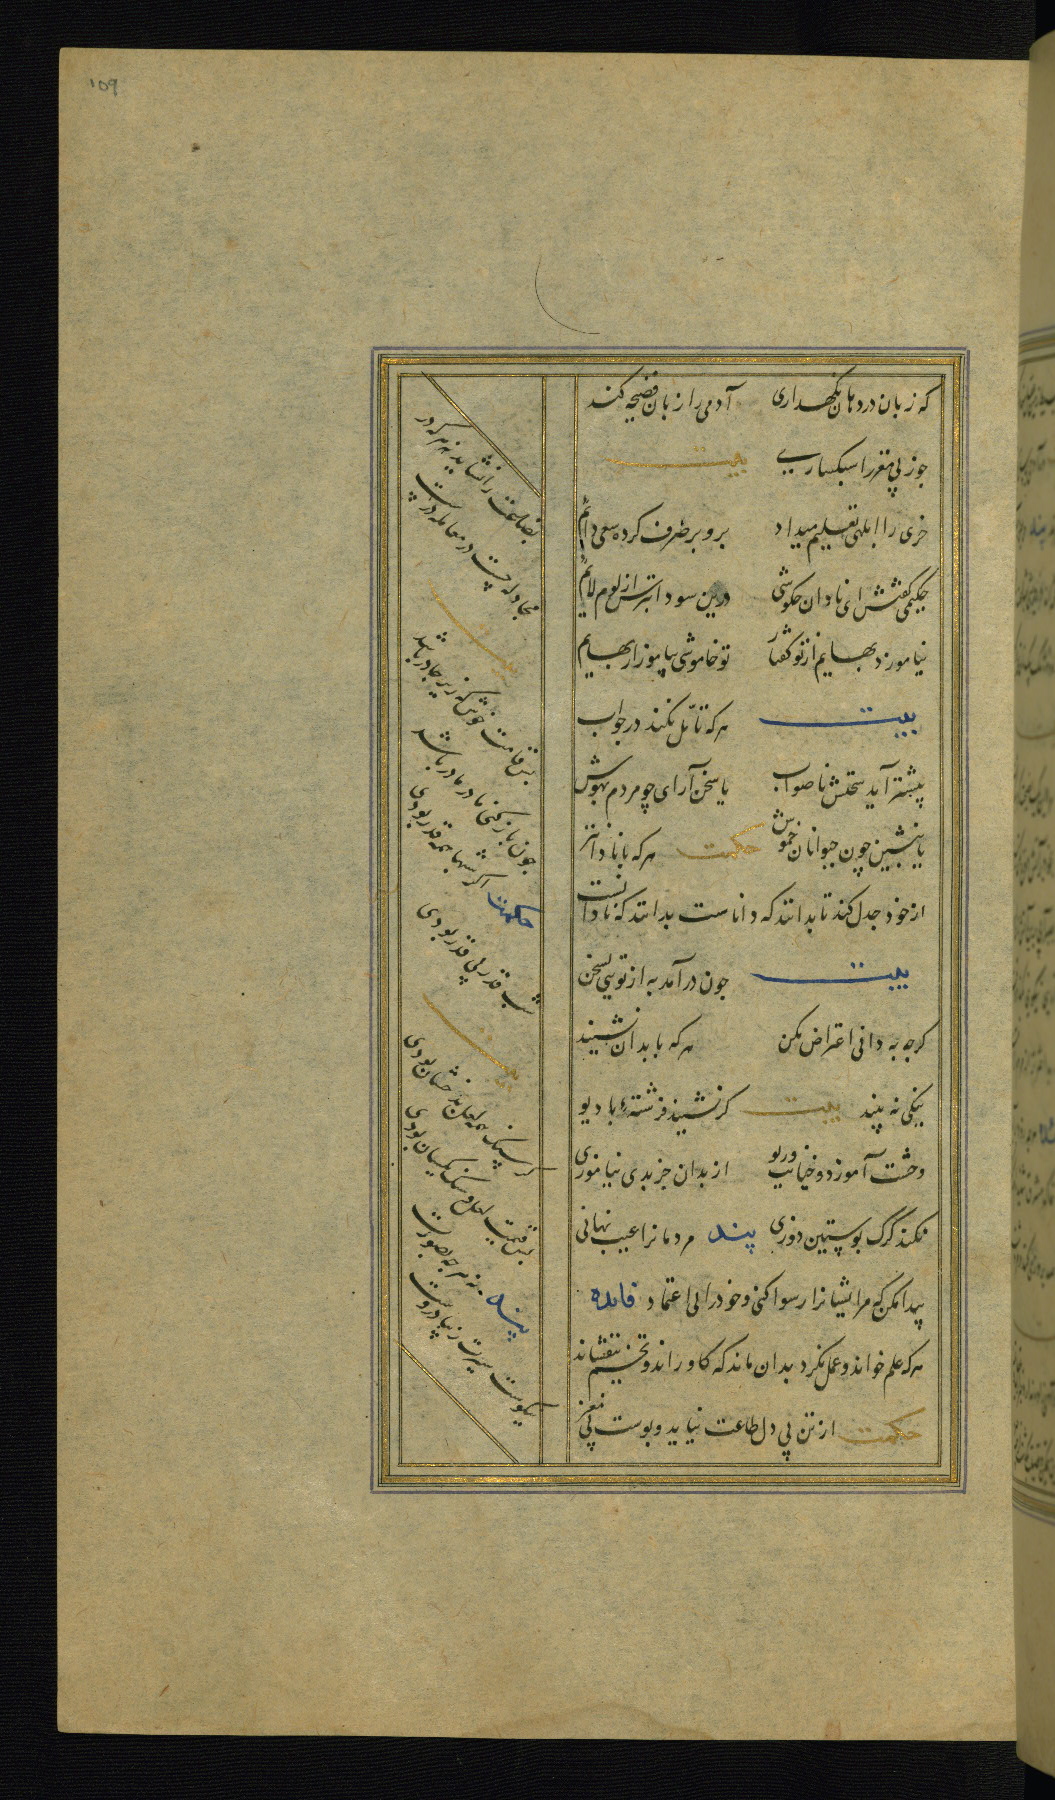 ۱۵۹
که زبان در دهان نگهداری آدمی را زبان فضیحه کند
جوز بی مغز را سبکساریی بیت
خری را ابلهی تعلیم میداد برو بر صرف کرده سعی دائم
حکیمی گفتش ای نادان چه کوشی درین سودا بترس از لوم لائم
نیاموزد بهایم از تو گفتار تو خاموشی بیاموز از بهایم
بیت هر که تأمل نکند در جواب
بیشتر آید سخنش ناصواب یا سخن آرای چو مردم بهوش
یا بنشین چون حیوانان خموش حکمت هر که با نادانتر
از خود جدل کند تا بدانند که داناست بدانند که نادانست
بیت چون درآمد به از تویی بسخن
کرچه به دانی اعتراض مکن هر که با بدان نشیند
نیکی نه بیند بیت کر نشیند فرشتهٔ با دیو
وحشت آموزد و خیانت و ریو از بدان جز بدی نیاموزی
نکند گرگ پوستین دوزی پند مردمانرا عیب نهانی
پیدا مکن که مرایشانرا رسوا کنی و خود را بی اعتماد فایده
هر که علم خواند و عمل نکرد بدان ماند که گاو راند و تخم نیفشاند
حکمت از تن بی دل طاعت نیاید و پوست بی مغز
بضاعت را نشاید نه هر که در
مجادله چست در معامله درست
بیت
بس قامت خوش که زیر چادر باشد
چون باز کنی مادر مادر باشد
حکمت اگر شبها همه قدر بودی
شب قدر بی قدر بودی
بیت
گر سنگ همه لعل بدخشان بودی
پس قیمت لعل و سنگ یکسان بودی
پند نه هر چه بصورت
نیکوست سیرت زیبا دروست